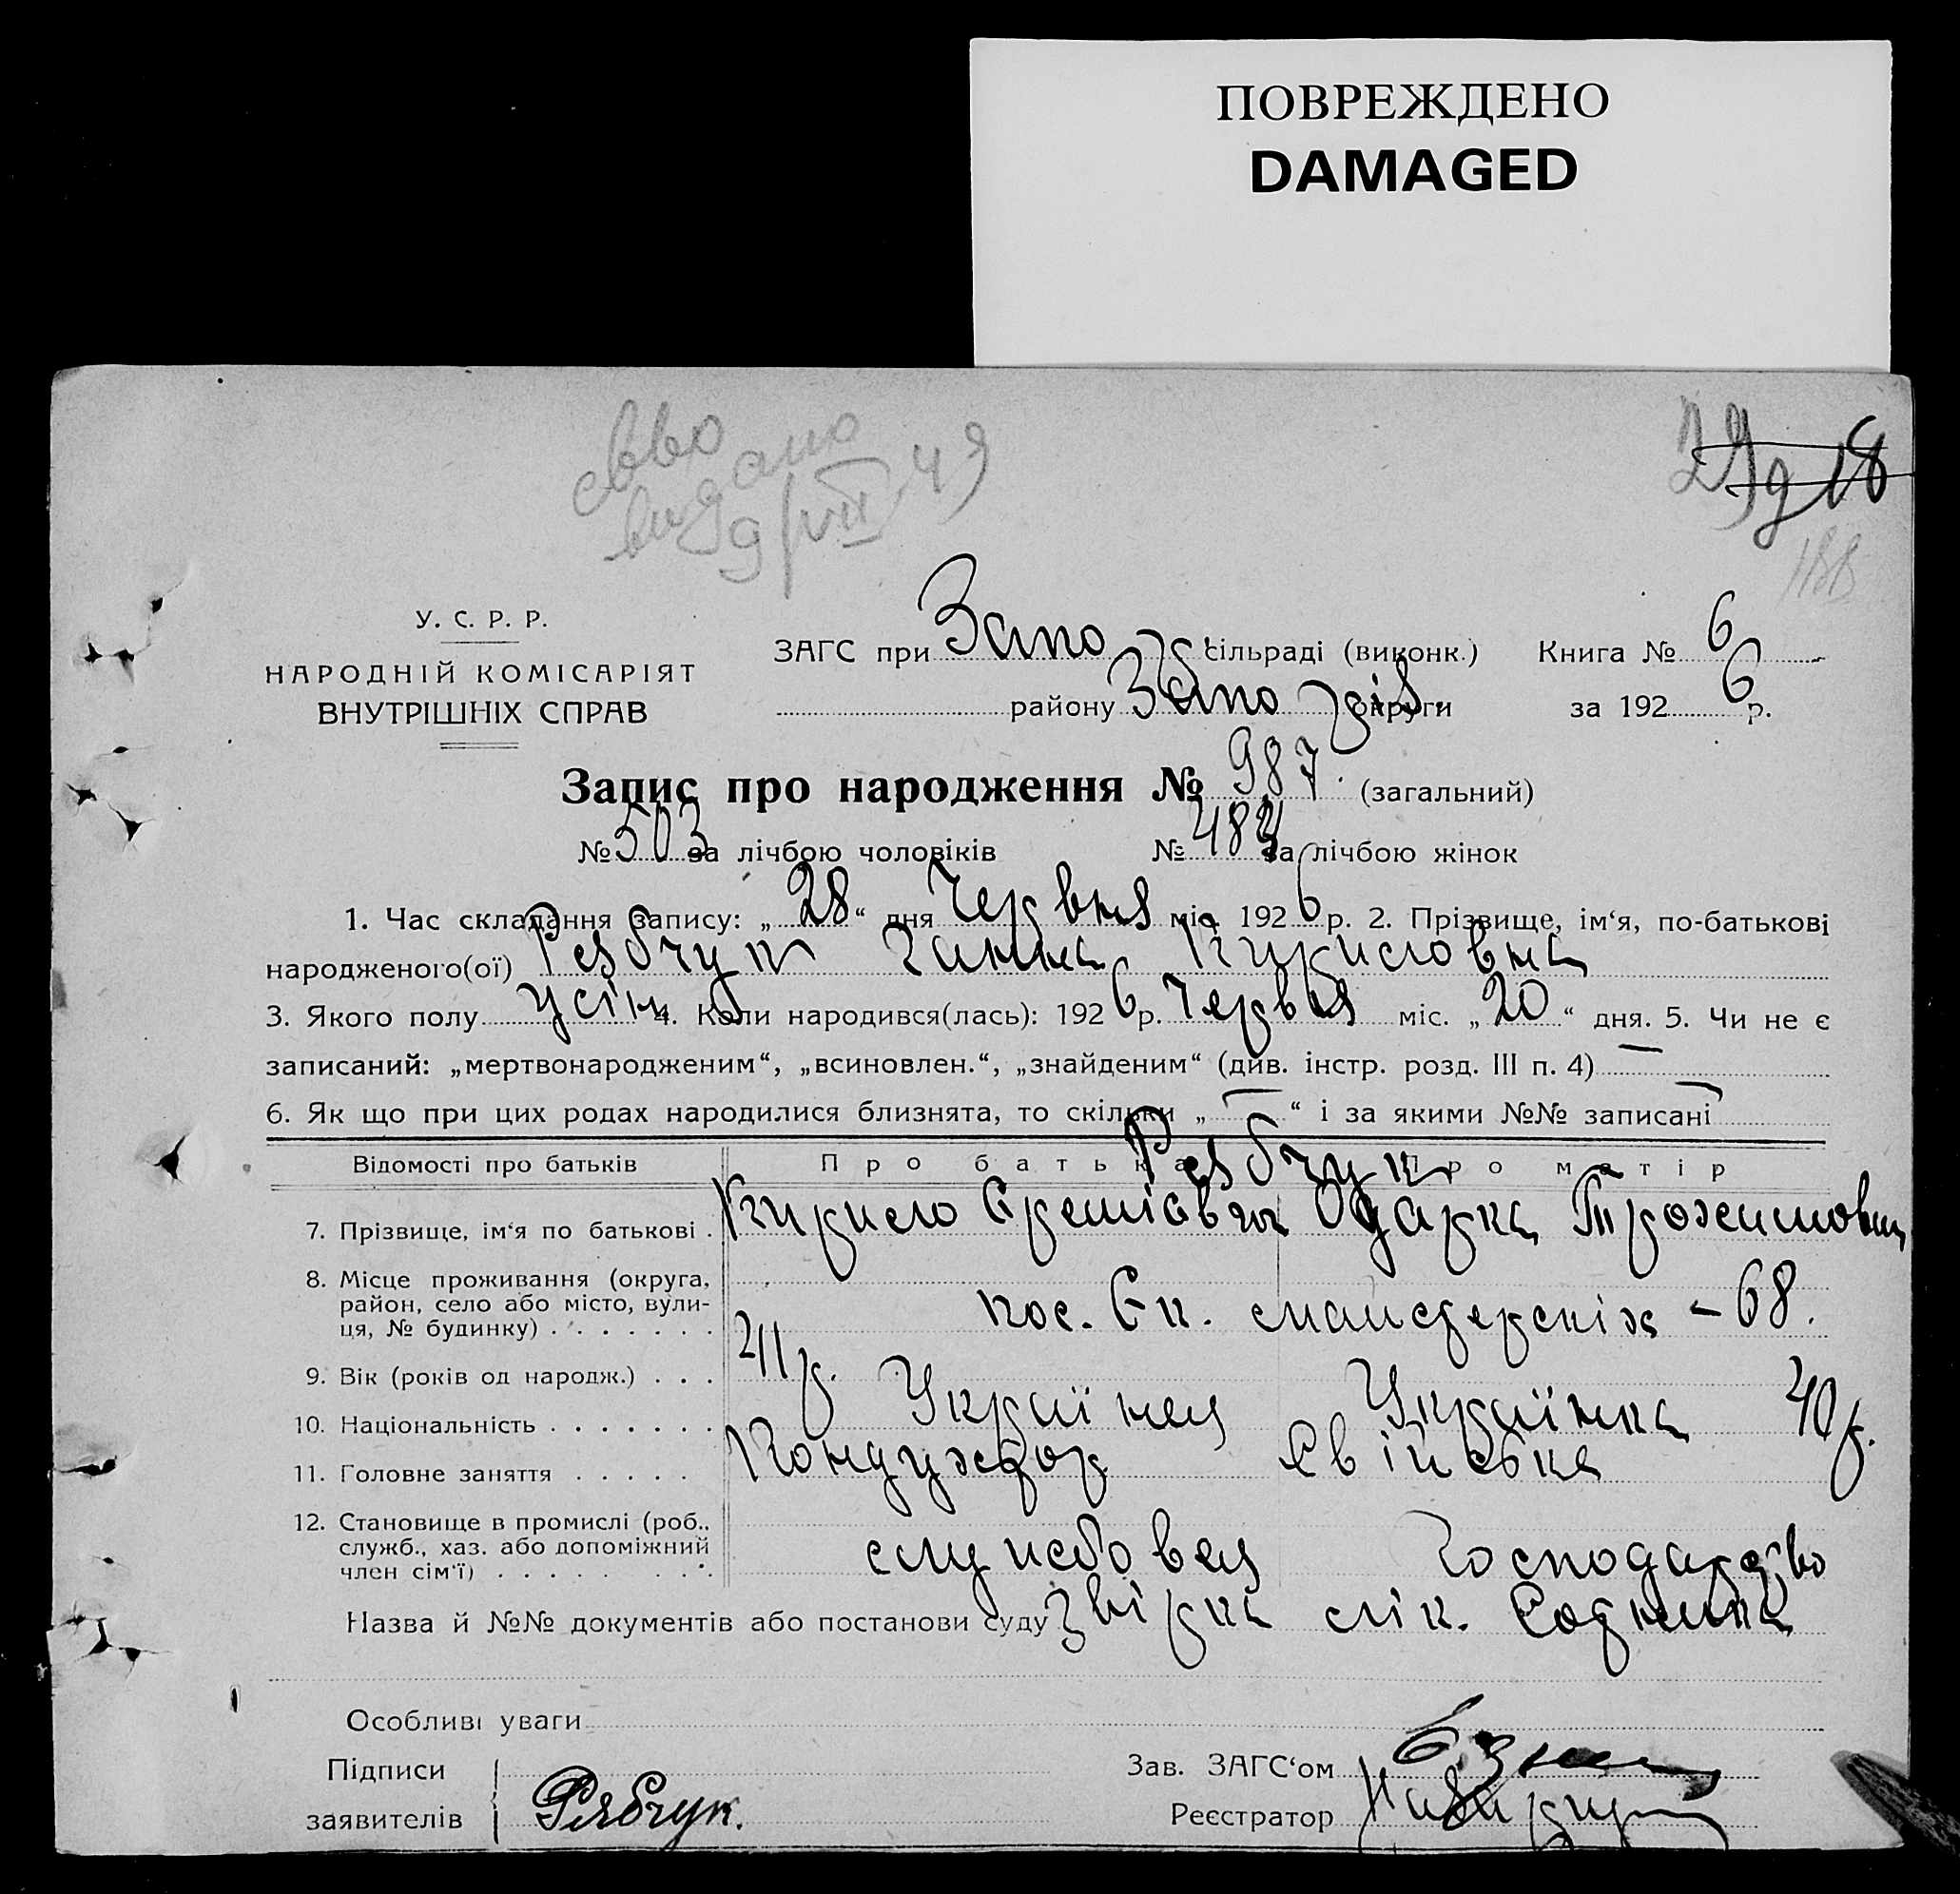 ПОВРЕЖДЕНО
DAMAGED
29 18
188
видано
9/VII 49
У. С. Р. Р.
НАРОДНІЙ КОМІСАРІЯТ
ВНУТРІШНІХ СПРАВ
ЗАГС при Запо сільраді (виконк.) Книга № 6
району Запо округи за 192 6 р.
Запис про народження № 987. (загальний)
№ 503 за лічбою чоловіків № 484 за лічбою жінок
1. Час складання запису: „ 28 “ дня Червня міс. 192 6 р. 2. Прізвище, ім‘я, по-батькові
народженого(ої) Рябчук Ганна Кириловна
3. Якого полу жін 4. Коли народився(лась): 192 6 р. Червня міс. „ 20 “ дня. 5. Чи не є
записаний: „мертвонародженим“, „всиновлен.“, „знайденим“ (див. інстр. розд. III п. 4) —
6. Як що при цих родах народилися близнята, то скільки „ — “ і за якими №№ записані —
Відомості про батьків Про батька Про матір
Рябчук
7. Прізвище, ім‘я по батькові . Кирило Одарка Трохимовна
8. Місце проживання (округа,
район, село або місто, вули-
ця, № будинку) . . . . . . . пос. Єк. – 68.
9. Вік (років од народж.) . . . 41 р. 40 р.
10. Національність . . . . . . . Українец Українка
11. Головне заняття . . . . . Кондуктор Хатня
12. Становище в промислі (роб..
служб., хаз. або допоміжний
член сім‘ї) . . . . . . . . службовец Господарство
Назва й №№ документів або постанови суду лік.
Особливі уваги
Підписи
заявителів Рябчук.
Зав. ЗАГС‘ом
Реєстратор